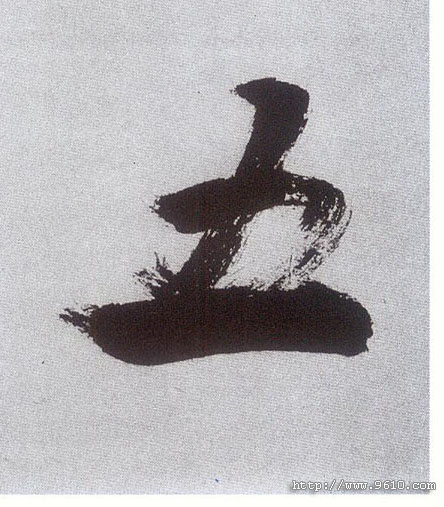 五
http://www.9610.com